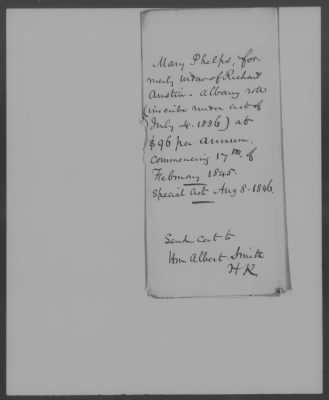 Mary Phelps, for-
merly widow of Richard
Austin - Albany roll
(inscribe under act of
July 4. 1836) at
$96 per annum,
commencing 17th of
February 1845.
Special Act Aug 8. 1846.
Send cert to
Wm Albert Smith
H R